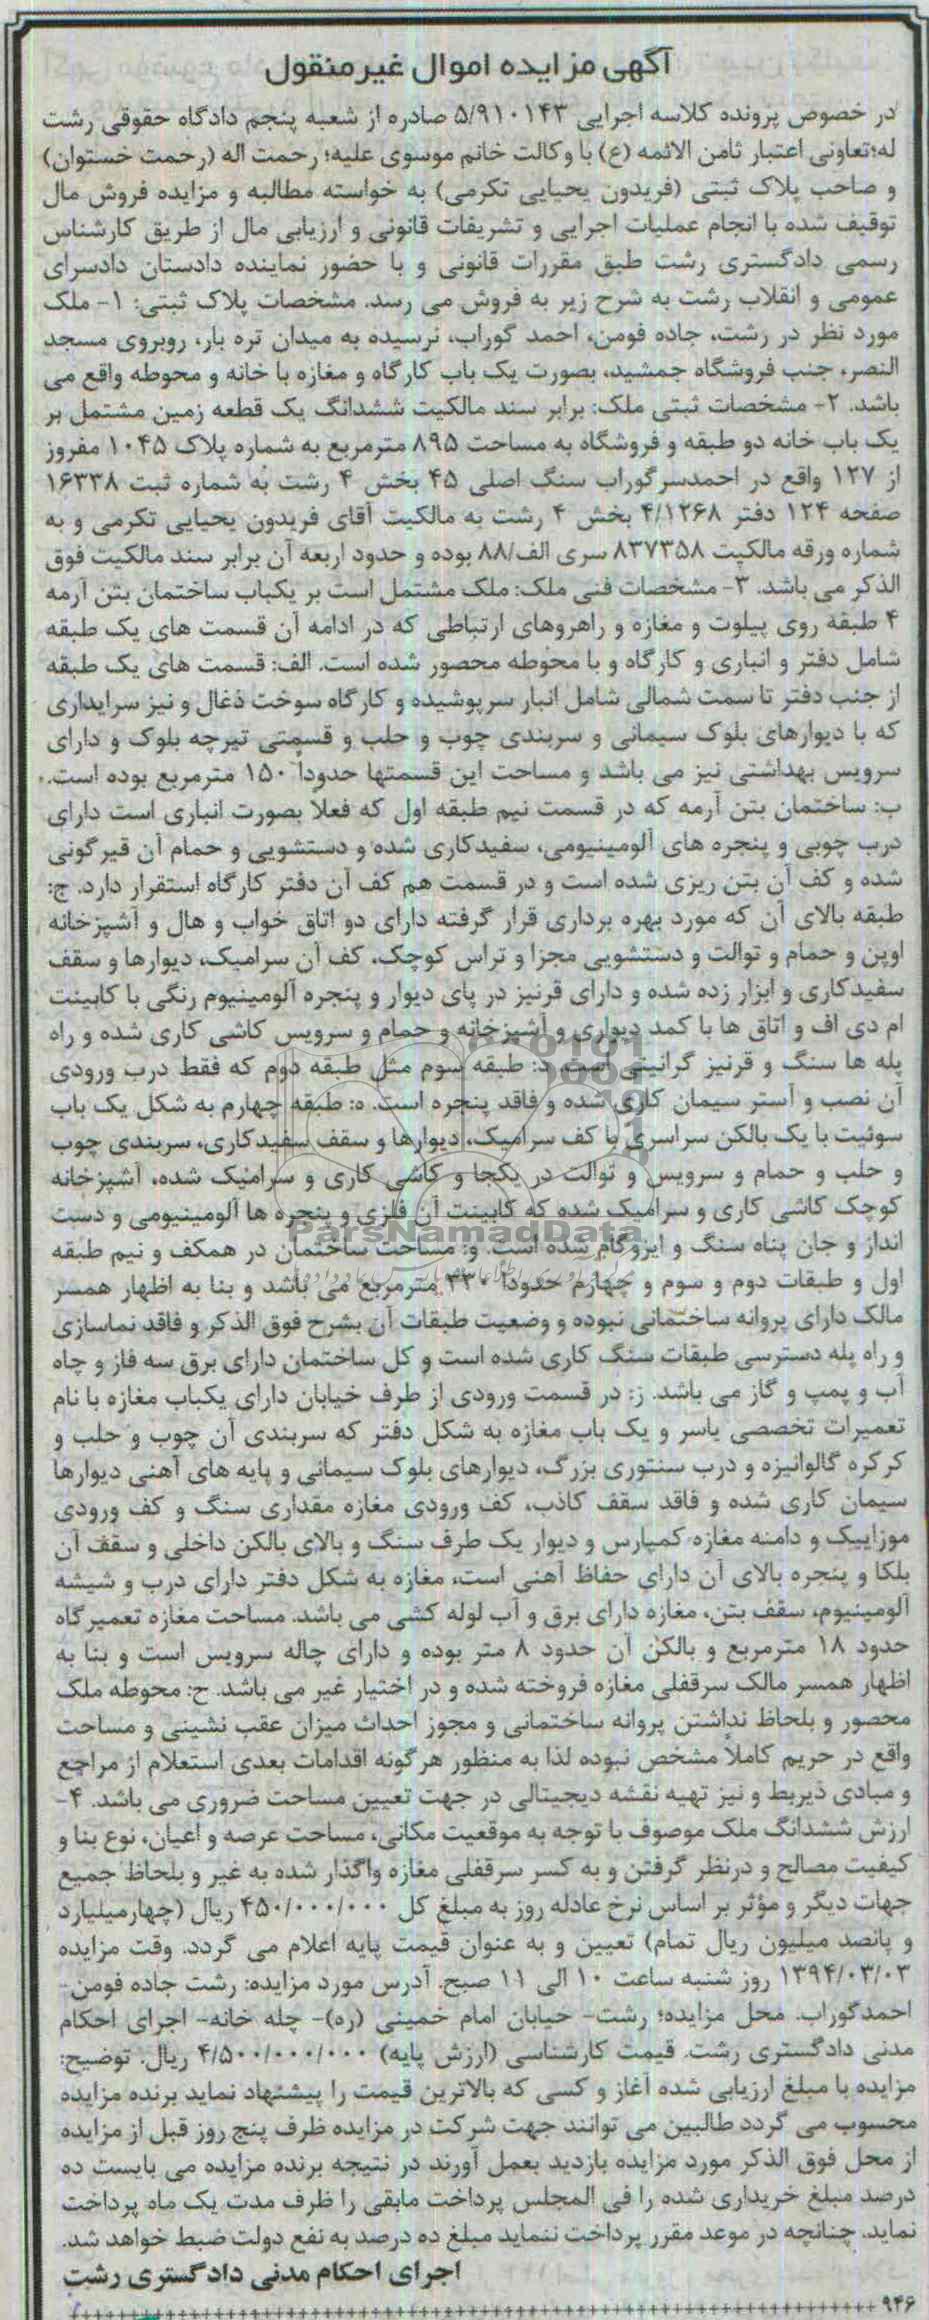 آگهی مزایده اموال غیرمنقول
در خصوص پرونده کلاسه اجرایی ۵/۹۱۰۱۴۳ صادره از شعبه پنجم دادگاه حقوقی رشت
له؛تعاونی اعتبار ثامن الائمه (ع) با وکالت خانم موسوی علیه؛ رحمت اله (رحمت خستوان)
و صاحب پلاک ثبتی (فریدون یحیایی تکرمی) به خواسته مطالبه و مزایده فروش مال
توقیف شده با انجام عملیات اجرایی و تشریفات قانونی و ارزیابی مال از طریق کارشناس
رسمی دادگستری رشت طبق مقررات قانونی و با حضور نماینده دادستان دادسرای
عمومی و انقلاب رشت به شرح زیر به فروش می رسد. مشخصات پلاک ثبتی: ۱- ملک
مورد نظر در رشت، جاده فومن، احمد گوراب، نرسیده به میدان تره بار، روبروی مسجد
النصر، جنب فروشگاه جمشید، بصورت یک باب کارگاه و مغازه با خانه و محوطه واقع می
باشد. ۲- مشخصات ثبتی ملک: برابر سند مالکیت ششدانگ یک قطعه زمین مشتمل بر
یک باب خانه دو طبقه و فروشگاه به مساحت ۸۹۵ مترمربع به شماره پلاک ۱۰۴۵ مفروز
از ۱۲۷ واقع در احمدسرگوراب سنگ اصلی ۴۵ بخش ۴ رشت به شماره ثبت ۱۶۳۳۸
صفحه ۱۲۴ دفتر ۴/۱۲۶۸ بخش ۴ رشت به مالکیت آقای فریدون یحیایی تکرمی و به
شماره ورقه مالکیت ۸۳۷۳۵۸ سری الف/۸۸ بوده و حدود اربعه آن برابر سند مالکیت فوق
الذکر می باشد. ۳- مشخصات فنی ملک: ملک مشتمل است بر یکباب ساختمان بتن آرمه
۴ طبقه روی پیلوت و مغازه و راهروهای ارتباطی که در ادامه آن قسمت های یک طبقه
شامل دفتر و انباری و کارگاه و با محوطه محصور شده است. الف: قسمت های یک طبقه
از جنب دفتر تا سمت شمالی شامل انبار سرپوشیده و کارگاه سوخت ذغال و نیز سرایداری
که با دیوارهای بلوک سیمانی و سربندی چوب و حلب و قسمتی تیرچه بلوک و دارای
سرویس بهداشتی نیز می باشد و مساحت این قسمتها حدوداً ۱۵۰ مترمربع بوده است.
ب: ساختمان بتن آرمه که در قسمت نیم طبقه اول که فعلاً بصورت انباری است دارای
درب چوبی و پنجره های آلومینیومی، سفیدکاری شده و دستشویی و حمام آن قیرگونی
شده و کف آن بتن ریزی شده است و در قسمت هم کف آن دفتر کارگاه استقرار دارد. ج:
طبقه بالای آن که مورد بهره برداری قرار گرفته دارای دو اتاق خواب و هال و آشپزخانه
اوپن و حمام و توالت و دستشویی مجزا و تراس کوچک، کف آن سرامیک، دیوارها و سقف
سفیدکاری و ابزار زده شده و دارای قرنیز در پای دیوار و پنجره آلومینیوم رنگی با کابینت
ام دی اف و اتاق ها با کمد دیواری و آشپزخانه و حمام و سرویس کاشی کاری شده و راه
پله ها سنگ و قرنیز گرانیتی است د: طبقه سوم مثل طبقه دوم که فقط درب ورودی
آن نصب و آستر سیمان کاری شده و فاقد پنجره است. ه: طبقه چهارم به شکل یک باب
سوئیت با یک بالکن سراسری با کف سرامیک، دیوارها و سقف سفیدکاری، سربندی چوب
و حلب و حمام و سرویس و توالت در یکجا و کاشی کاری و سرامیک شده، آشپزخانه
کوچک کاشی کاری و سرامیک شده که کابینت آن فلزی و پنجره ها آلومینیومی و دست
انداز و جان پناه سنگ و ایزوگام شده است. و: مساحت ساختمان در همکف و نیم طبقه
اول و طبقات دوم و سوم و چهارم حدوداً ۳۳۰ مترمربع می باشد و بنا به اظهار همسر
مالک دارای پروانه ساختمانی نبوده و وضعیت طبقات آن بشرح فوق الذکر و فاقد نماسازی
و راه پله دسترسی طبقات سنگ کاری شده است و کل ساختمان دارای برق سه فاز و چاه
آب و پمپ و گاز می باشد. ز: در قسمت ورودی از طرف خیابان دارای یکباب مغازه با نام
تعمیرات تخصصی یاسر و یک باب مغازه به شکل دفتر که سربندی آن چوب و حلب و
کرکره گالوانیزه و درب سنتوری بزرگ، دیوارهای بلوک سیمانی و پایه های آهنی دیوارها
سیمان کاری شده و فاقد سقف کاذب، کف ورودی مغازه مقداری سنگ و کف ورودی
موزاییک و دامنه مغازه کمپارس و دیوار یک طرف سنگ و بالای بالکن داخلی و سقف آن
بلکا و پنجره بالای آن دارای حفاظ آهنی است، مغازه به شکل دفتر دارای درب و شیشه
آلومینیوم، سقف بتن، مغازه دارای برق و آب لوله کشی می باشد. مساحت مغازه تعمیرگاه
حدود ۱۸ مترمربع و بالکن آن حدود ۸ متر بوده و دارای چاله سرویس است و بنا به
اظهار همسر مالک سرقفلی مغازه فروخته شده و در اختیار غیر می باشد. ح: محوطه ملک
محصور و بلحاظ نداشتن پروانه ساختمانی و مجوز احداث میزان عقب نشینی و مساحت
واقع در حریم کاملاً مشخص نبوده لذا به منظور هرگونه اقدامات بعدی استعلام از مراجع
و مبادی ذیربط و نیز تهیه نقشه دیجیتالی در جهت تعیین مساحت ضروری می باشد. ۴-
ارزش ششدانگ ملک موصوف با توجه به موقعیت مکانی، مساحت عرصه و اعیان، نوع بنا و
کیفیت مصالح و درنظر گرفتن و به کسر سرقفلی مغازه واگذار شده به غیر و بلحاظ جمیع
جهات دیگر و مؤثر بر اساس نرخ عادله روز به مبلغ کل ۴۵۰/۰۰۰/۰۰۰ ریال (چهارمیلیارد
و پانصد میلیون ریال تمام) تعیین و به عنوان قیمت پایه اعلام می گردد. وقت مزایده
۱۳۹۴/۰۳/۰۳ روز شنبه ساعت ۱۰ الی ۱۱ صبح. آدرس مورد مزایده: رشت جاده فومن-
احمدگوراب. محل مزایده؛ رشت- خیابان امام خمینی (ره)- چله خانه- اجرای احکام
مدنی دادگستری رشت. قیمت کارشناسی (ارزش پایه) ۴/۵۰۰/۰۰۰/۰۰۰ ریال. توضیح:
مزایده با مبلغ ارزیابی شده آغاز و کسی که بالاترین قیمت را پیشنهاد نماید برنده مزایده
محسوب می گردد طالبین می توانند جهت شرکت در مزایده ظرف پنج روز قبل از مزایده
از محل فوق الذکر مورد مزایده بازدید بعمل آورند در نتیجه برنده مزایده می بایست ده
درصد مبلغ خریداری شده را فی المجلس پرداخت مابقی را ظرف مدت یک ماه پرداخت
نماید. چنانچه در موعد مقرر پرداخت ننماید مبلغ ده درصد به نفع دولت ضبط خواهد شد.
اجرای احکام مدنی دادگستری رشت
۹۴۶
ParsNamadData